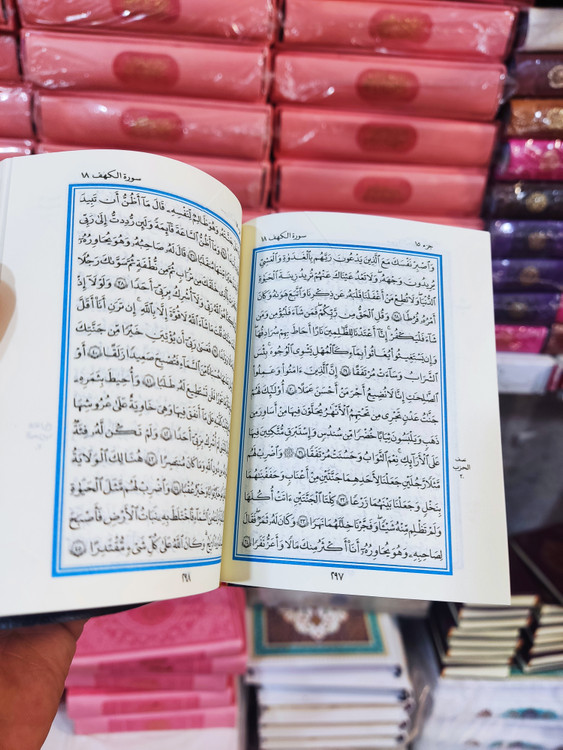 جزء ١٥
سورة الكهف ١٨
وَٱصْبِرْ نَفْسَكَ مَعَ ٱلَّذِينَ يَدْعُونَ رَبَّهُم بِٱلْغَدَوٰةِ وَٱلْعَشِىِّ
يُرِيدُونَ وَجْهَهُۥ وَلَا تَعْدُ عَيْنَاكَ عَنْهُمْ تُرِيدُ زِينَةَ ٱلْحَيَوٰةِ
ٱلدُّنْيَا وَلَا تُطِعْ مَنْ أَغْفَلْنَا قَلْبَهُۥ عَن ذِكْرِنَا وَٱتَّبَعَ هَوَىٰهُ وَكَانَ
أَمْرُهُۥ فُرُطًا ٢٨ وَقُلِ ٱلْحَقُّ مِن رَّبِّكُمْ فَمَن شَآءَ فَلْيُؤْمِن وَمَن
شَآءَ فَلْيَكْفُرْ إِنَّآ أَعْتَدْنَا لِلظَّٰلِمِينَ نَارًا أَحَاطَ بِهِمْ سُرَادِقُهَا
وَإِن يَسْتَغِيثُوا۟ يُغَاثُوا۟ بِمَآءٍ كَٱلْمُهْلِ يَشْوِى ٱلْوُجُوهَ بِئْسَ
ٱلشَّرَابُ وَسَآءَتْ مُرْتَفَقًا ٢٩ إِنَّ ٱلَّذِينَ ءَامَنُوا۟ وَعَمِلُوا۟
ٱلصَّٰلِحَٰتِ إِنَّا لَا نُضِيعُ أَجْرَ مَنْ أَحْسَنَ عَمَلًا ٣٠ أُو۟لَٰٓئِكَ لَهُمْ
جَنَّٰتُ عَدْنٍ تَجْرِى مِن تَحْتِهِمُ ٱلْأَنْهَٰرُ يُحَلَّوْنَ فِيهَا مِنْ أَسَاوِرَ مِن
ذَهَبٍ وَيَلْبَسُونَ ثِيَابًا خُضْرًا مِّن سُندُسٍ وَإِسْتَبْرَقٍ مُّتَّكِـِٔينَ فِيهَا
عَلَى ٱلْأَرَآئِكِ نِعْمَ ٱلثَّوَابُ وَحَسُنَتْ مُرْتَفَقًا ٣١ ۞ وَٱضْرِبْ لَهُم
مَّثَلًا رَّجُلَيْنِ جَعَلْنَا لِأَحَدِهِمَا جَنَّتَيْنِ مِنْ أَعْنَٰبٍ وَحَفَفْنَٰهُمَا
بِنَخْلٍ وَجَعَلْنَا بَيْنَهُمَا زَرْعًا ٣٢ كِلْتَا ٱلْجَنَّتَيْنِ ءَاتَتْ أُكُلَهَا
وَلَمْ تَظْلِم مِّنْهُ شَيْـًٔا وَفَجَّرْنَا خِلَٰلَهُمَا نَهَرًا ٣٣ وَكَانَ لَهُۥ ثَمَرٌ فَقَالَ
لِصَٰحِبِهِۦ وَهُوَ يُحَاوِرُهُۥٓ أَنَا۠ أَكْثَرُ مِنكَ مَالًا وَأَعَزُّ نَفَرًا ٣٤
نصف
الحزب
٣٠
٢٩٧
سورة الكهف ١٨
وَهُوَ ظَالِمٌ لِّنَفْسِهِۦ قَالَ مَآ أَظُنُّ أَن تَبِيدَ
وَمَآ أَظُنُّ ٱلسَّاعَةَ قَآئِمَةً وَلَئِن رُّدِدتُّ إِلَىٰ رَبِّى
مُنقَلَبًا ٣٦ قَالَ لَهُۥ صَاحِبُهُۥ وَهُوَ يُحَاوِرُهُۥٓ
مِن تُرَابٍ ثُمَّ مِن نُّطْفَةٍ ثُمَّ سَوَّىٰكَ رَجُلًا
رَبِّى وَلَآ أُشْرِكُ بِرَبِّىٓ أَحَدًا ٣٨ وَلَوْلَآ إِذْ
شَآءَ ٱللَّهُ لَا قُوَّةَ إِلَّا بِٱللَّهِ إِن تَرَنِ أَنَا۠ أَقَلَّ
فَعَسَىٰ رَبِّىٓ أَن يُؤْتِيَنِ خَيْرًا مِّن جَنَّتِكَ
مِّنَ ٱلسَّمَآءِ فَتُصْبِحَ صَعِيدًا زَلَقًا ٤٠ أَوْ
فَلَن تَسْتَطِيعَ لَهُۥ طَلَبًا ٤١ وَأُحِيطَ بِثَمَرِهِۦ
مَآ أَنفَقَ فِيهَا وَهِىَ خَاوِيَةٌ عَلَىٰ عُرُوشِهَا
أُشْرِكْ بِرَبِّىٓ أَحَدًا ٤٢ وَلَمْ تَكُن لَّهُۥ فِئَةٌ
ٱللَّهِ وَمَا كَانَ مُنتَصِرًا ٤٣ هُنَالِكَ ٱلْوَلَٰيَةُ
وَخَيْرٌ عُقْبًا ٤٤ وَٱضْرِبْ لَهُم مَّثَلَ ٱلْحَيَوٰةِ
ٱلسَّمَآءِ فَٱخْتَلَطَ بِهِۦ نَبَاتُ ٱلْأَرْضِ فَأَصْبَحَ
ٱلرِّيَٰحُ وَكَانَ ٱللَّهُ عَلَىٰ كُلِّ شَىْءٍ مُّقْتَدِرًا ٤٥
٢٩٨